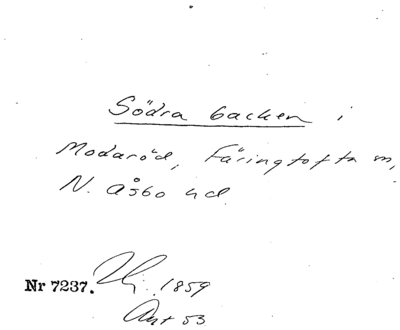 Södra backen i
Modaröd, Färingtofta sn,
N. Åsbo hd.
Nr 7237. 1859
Avt 53